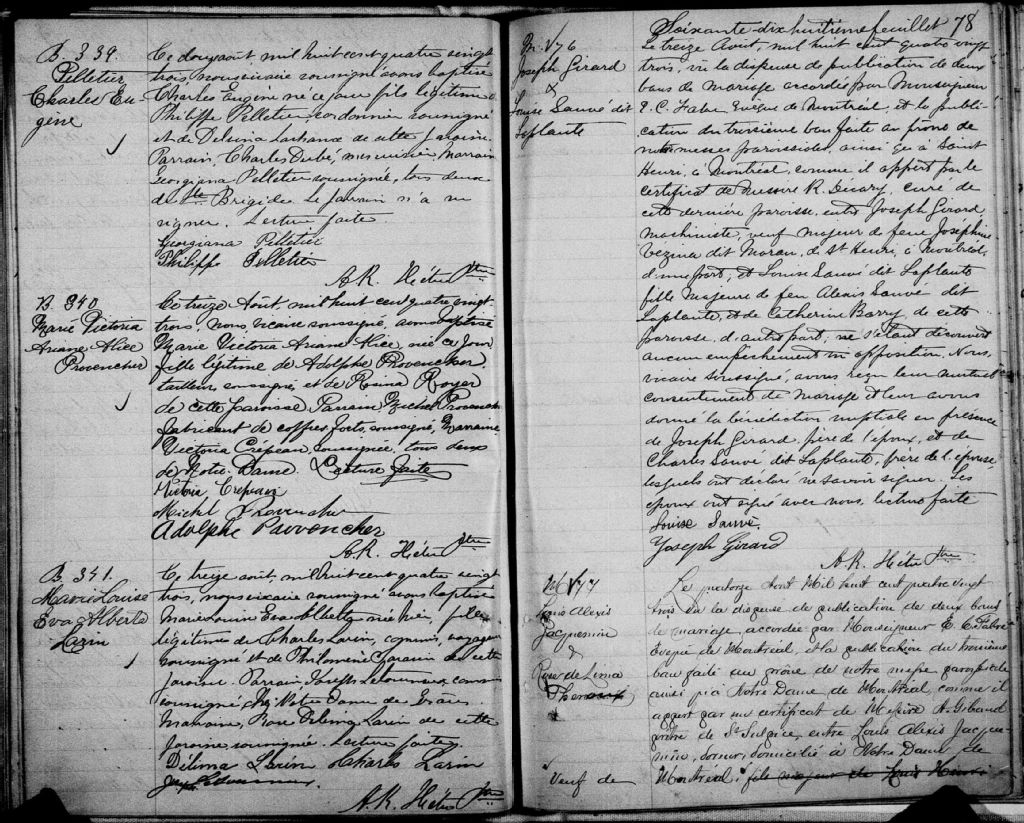 B 339.
Pelletier
Charles Eu-
gène
Ce douze août mil huit cent quatre vingt
trois nous vicaire soussigné avons baptisé
Charles Eugène né ce jour fils légitime de
Philippe Pelletier cordonnier soussigné
et de Delvina Lachance de cette paroisse
Parrain, Charles Dubé, menuisier Marraine
Georgiana Pelletier soussignée, tous deux
de Ste Brigide Le parrain n'a su
signer. Lecture faite
Georgiana Pelletier
Philippe Pelletier
A. R. Hétu Ptre
B. 340
Marie Victoria
Ariane Alice
Provencher
Ce treize Août mil huit cent quatre vingt
trois, nous, vicaire soussigné, avons baptisé
Marie Victoria Ariane Alice, née ce jour
fille légitime de Adolphe Provencher
tailleur, soussigné, et de Rosina Royer
de cette paroisse Parrain Michel Provencher
fabricant de coffres forts, soussigné, Marraine
Victoria Crépeau, soussignée, tous deux
de Notre-Dame. Lecture faite
Victoria Crépeau
Michel Provencher
Adolphe Parvoncher
A. R. Hétu Ptre
B. 341.
Marie Louise
Eva Alberta
Larin
Ce treize août, mil huit cent quatre vingt
trois, nous vicaire soussigné avons baptisé
Marie Louise Eva née hier, fille
légitime de Charles Larin, commis voyageur
soussigné et de Philomène de cette
paroisse. Parrain Joseph Letourneux, commis
soussigné, de Notre Dame de Grâces
Marraine, Rose Délima Larin de cette
paroisse soussignée. Lecture faite.
Délima Larin Charles Larin
A. R. Hétu Ptre
Soixante-dix huitième feuillet 78
M. 176
Joseph Girard
&
Louise Sauvé dit
Laplante
Le treize Août, mil huit cent quatre vingt
trois, vu la dispense de publication de deux
bans de mariage accordée par Monseigneur
E. C. Fabre Evêque de Montréal, et la publi-
cation du troisième ban faite au prône de
nos messes paroissiales, ainsi qu'à Saint
Henri, à Montréal, comme il appert par le
certificat de Messire R. Décary, curé de
cette dernière paroisse, entre Joseph Girard,
machiniste, veuf majeur de feue Josephine
Vézina dit Moran, de St Henri, à Montréal,
d'une part; et Louise Sauvé dit Laplante
fille Majeure de feu Alexis Sauvé dit
Laplante, et de Catherine Barry, de cette
paroisse, d'autre part; ne s'étant découvert
aucun empêchement ni opposition, Nous,
vicaire soussigné, avons reçu leur mutuel
consentement de mariage et leur avons
donné la bénédiction nuptiale en présence
de Joseph Girard, père de l'époux, et de
Charles Sauvé, dit Laplante, frère de l'épouse,
lesquels ont déclaré ne savoir signer. Les
époux ont signé avec nous, lecture faite
Louise Sauve.
Joseph Girard
A. R. Hétu Ptre
M. 177
Louis Alexis
Jacquemin
&
Rose de Lima
Veuf de
Le quatorze Août Mil huit cent quatre vingt
trois vu la dispense de publication de deux bans
de mariage, accordée par Monseigneur E. C. Fabre
Evêque de Montréal, et la publication du troisième
ban faite au prône de notre messe paroissiale
ainsi qu'à Notre Dame de Montréal, comme il
appert par un certificat de Messire A. Giband
prêtre de St Sulpice, entre Louis Alexis Jacque-
min, doreur, domicilié à Notre Dame de
Montréal, fils majeur de Louis